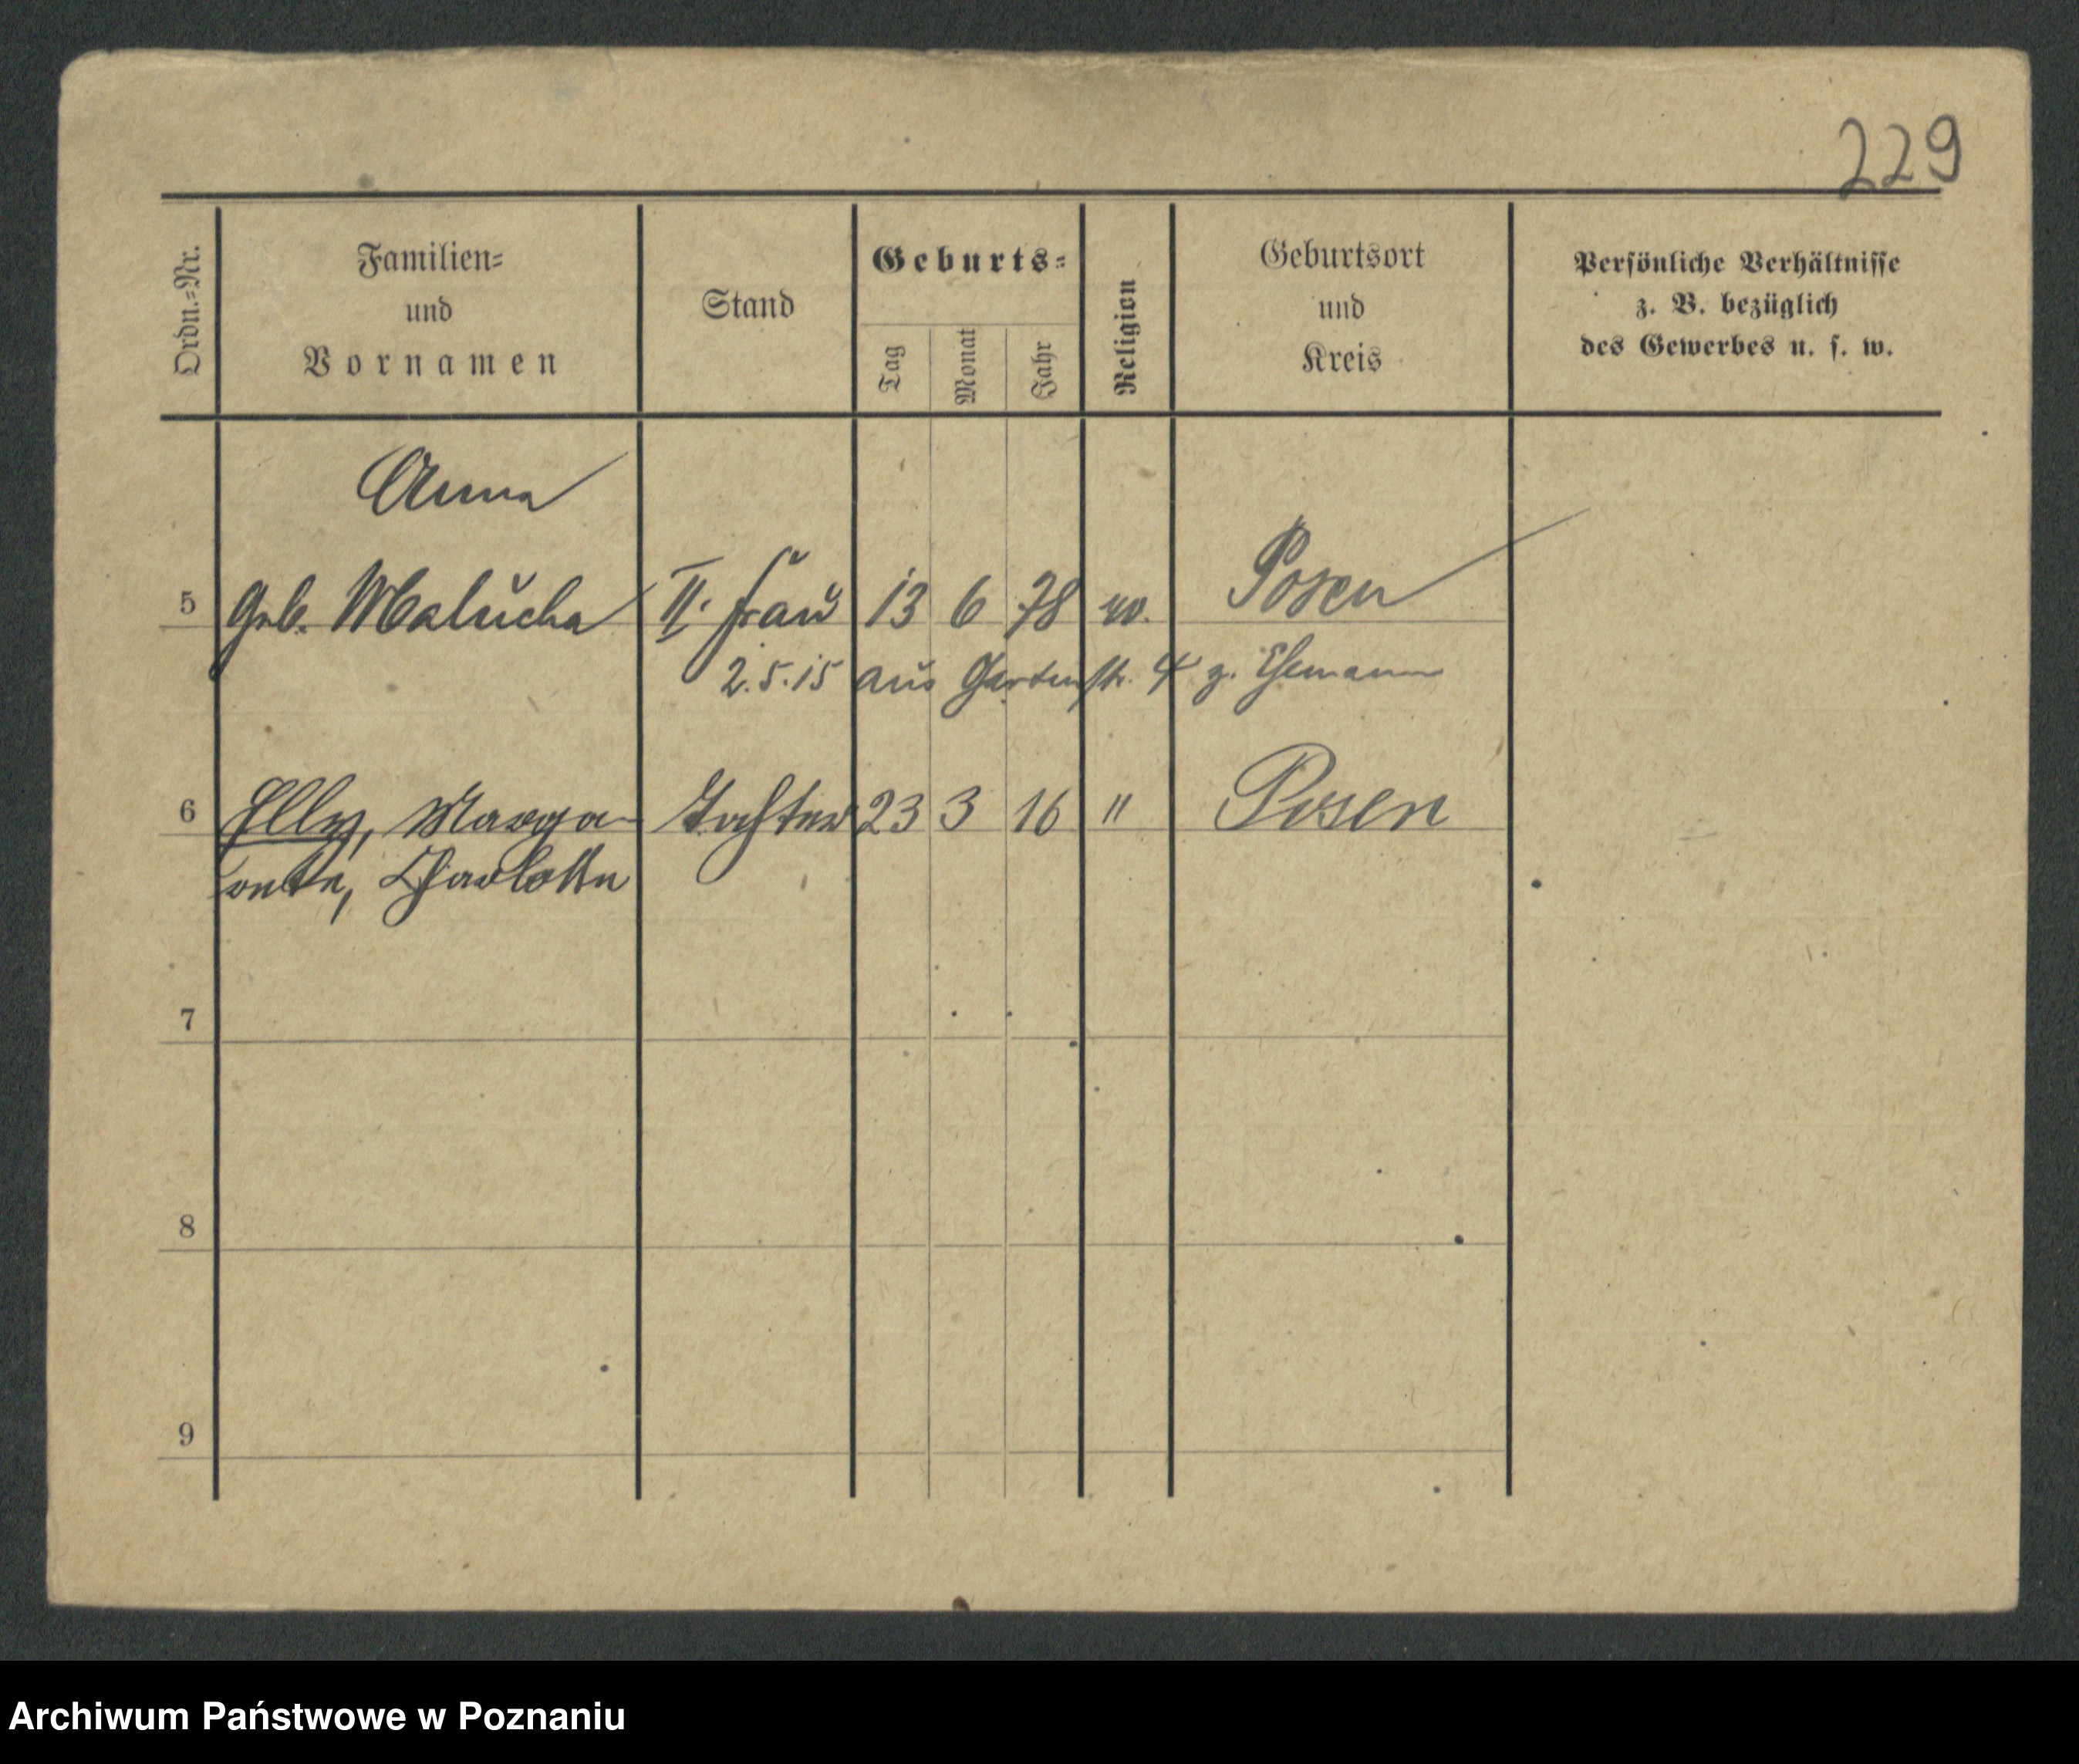 229
Ordn.=Nr.
Familien=
und
Vornamen
Stand
Geburts=
Tag
Monat
Jahr
Religion
Geburtsort
und
Kreis
Persönliche Verhältnisse
z. B. bezüglich
des Gewerbes u. s. w.
Anna
5 Geb. Malucha II. Frau 13 6 78 Posen
2.5.15 aus Gartenstr. 4 z. Ehemann
6 Elly, Marga- Tochter 23 3 16 " Posen
rete, Charlotte
7
8
9
Archiwum Państwowe w Poznaniu